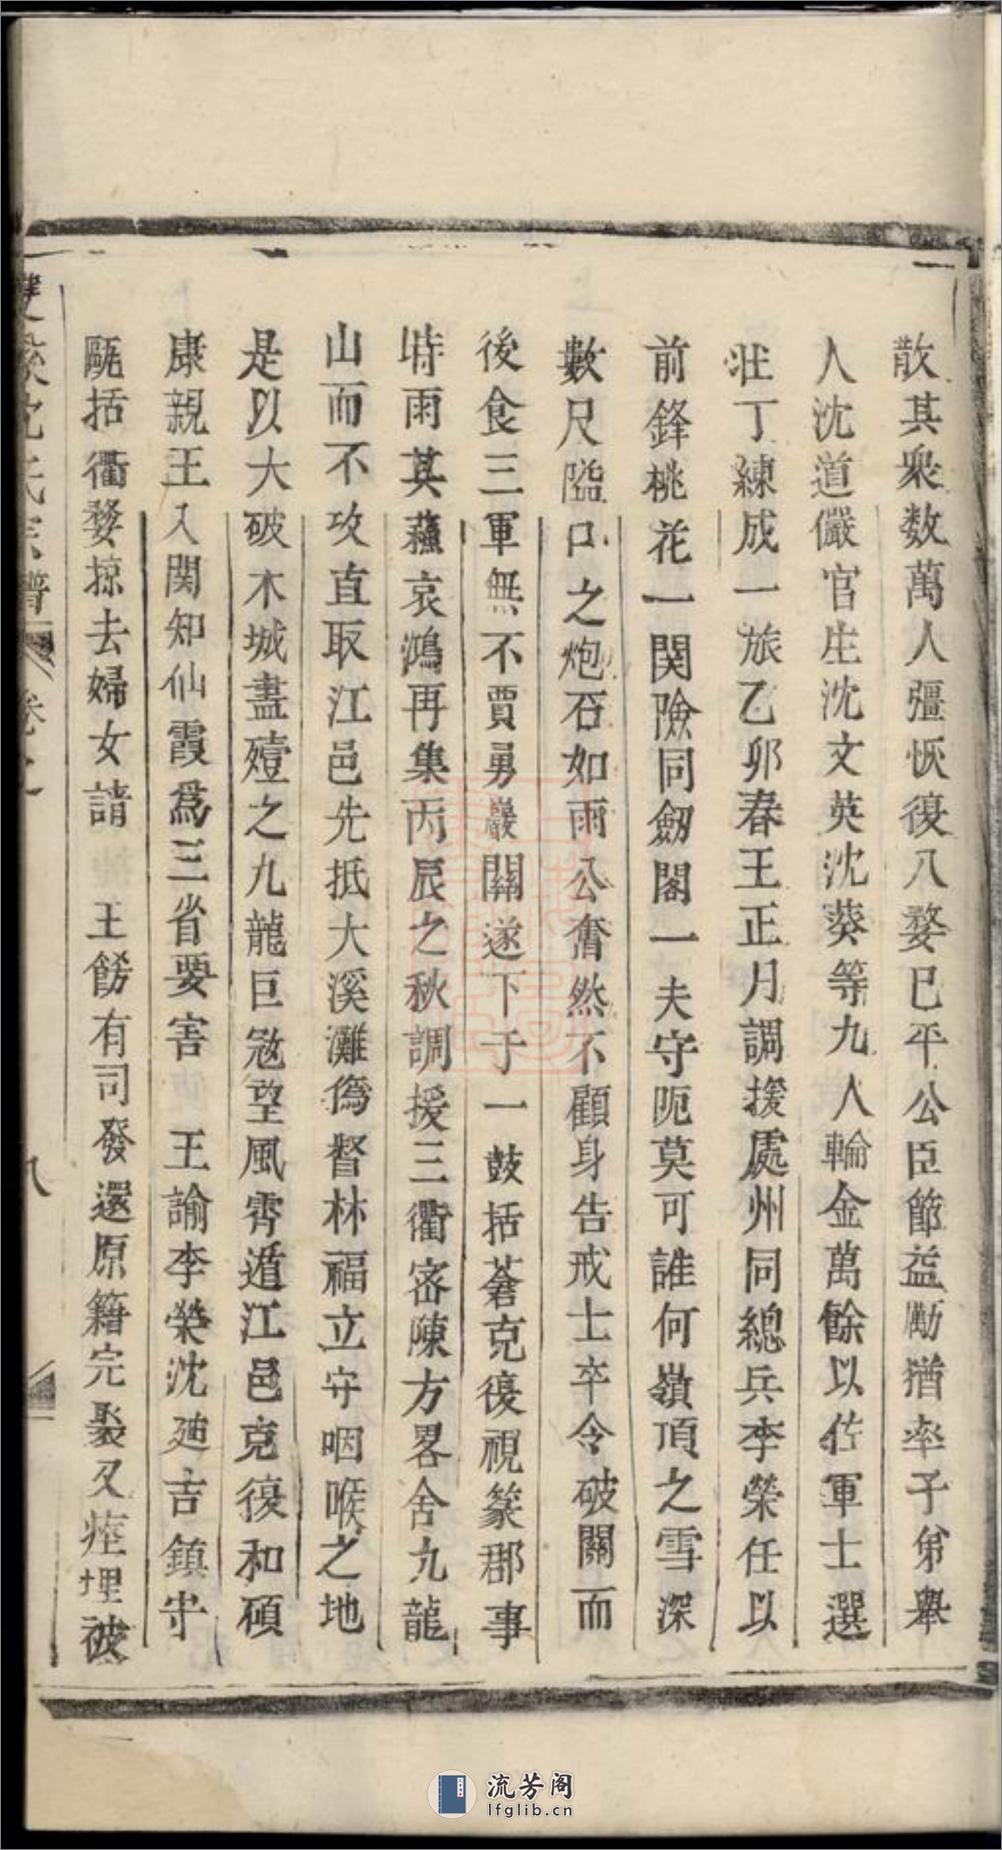 散其衆数萬人彊恢復八婺已平公臣節益勵猶率子弟舉
人沈道儼官生沈文英沈葵等九人輪金萬餘以佐軍士選
壮丁練成一旅乙卯春王正月調援處州同總兵李榮任以
前鋒桃花一関險同劒閣一夫守阨莫可誰何嶺頂之雪深
數尺隘口之炮石如雨公奮然不顧身告戒士卒令破關而
後食三軍無不賈勇巖關遂下于一鼓括蒼克復視篆郡事
時雨其蘓哀鴻再集丙辰之秋調援三衢密陳方畧舍九龍
山而不攻直取江邑先抵大溪灘僞督林福立守咽喉之地
是以大破木城盡殪之九龍巨冦望風霄遁江邑克復和碩
康親王入関知仙霞爲三省要害 王諭李榮沈廸吉鎮守
甌括衢婺掠去婦女請 王餝有司發還原籍完聚又痊埋被
沈氏宗譜 卷之一
八
流芳阁
lfglib.cn